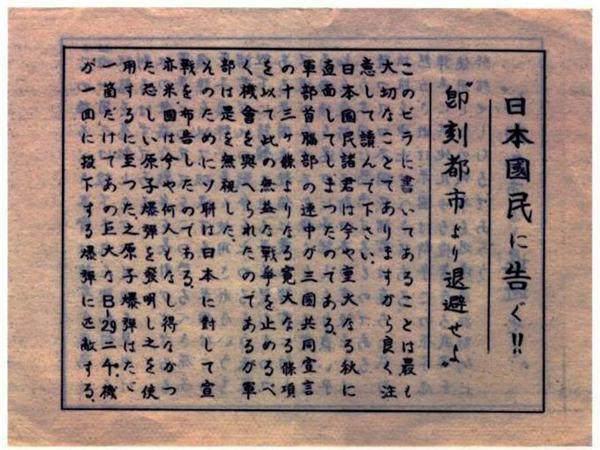 日本國民に告ぐ!!
"即刻都市より退避せよ"
このビラに書いてあることは最も
大切なことでありますから良く注
意して讀んで下さい。
日本國民諸君は今や重大なる秋に
直面してしまつたのである。
軍部首脳部の連中が三國共同宣言
の十三ヶ條よりなる寛大なる條項
を以て此の無益な戦争を止めるべ
く機會を與へられたのであるが軍
部は是を無視した。
そのためにソ聯は日本に對して宣
戦を布告したのである。
亦米國は今や何人もなし得なかつ
た恐しい原子爆弾を發明し之を使
用するに至つた。之原子爆弾はたゞ
一箇だけであの巨大なB-29二千機
が一回に投下する爆弾に匹敵する。